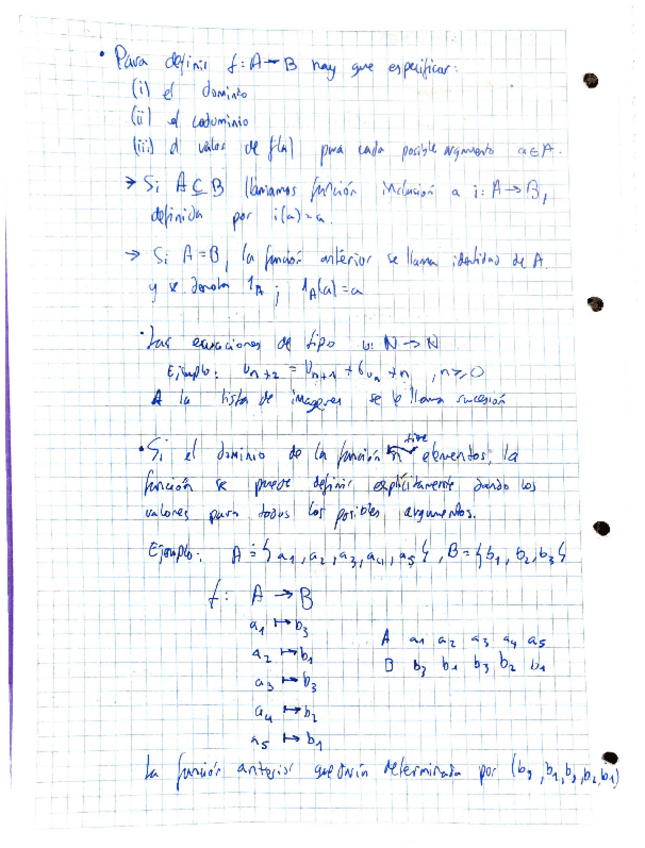 • Para definir f: A → B hay que especificar:
(i) el dominio
(ii) el codominio
(iii) el valor de f(a) para cada posible argumento a ∈ A.
→ Si A ⊆ B llamamos función inclusión a i: A → B,
definida por i(a) = a.
→ Si A = B, la función anterior se llama identidad de A.
y se denota 1_A ; 1_A(a) = a
• Las ecuaciones de tipo u: N → N
Ejemplo: U_{n+2} = U_{n+1} + 6u_n + n , n ≥ 0
A la lista de imagenes se le llama sucesión
tiene
• Si el dominio de la función n elementos, la
función se puede definir explícitamente dando los
valores para todos los posibles argumentos.
Ejemplo: A = {a1, a2, a3, a4, a5}, B = {b1, b2, b3}
f: A → B
a1 ↦ b3
a2 ↦ b1
a3 ↦ b3
a4 ↦ b2
a5 ↦ b1
A a1 a2 a3 a4 a5
B b3 b1 b3 b2 b1
La función anterior quedaría determinada por (b3, b1, b3, b2, b1)